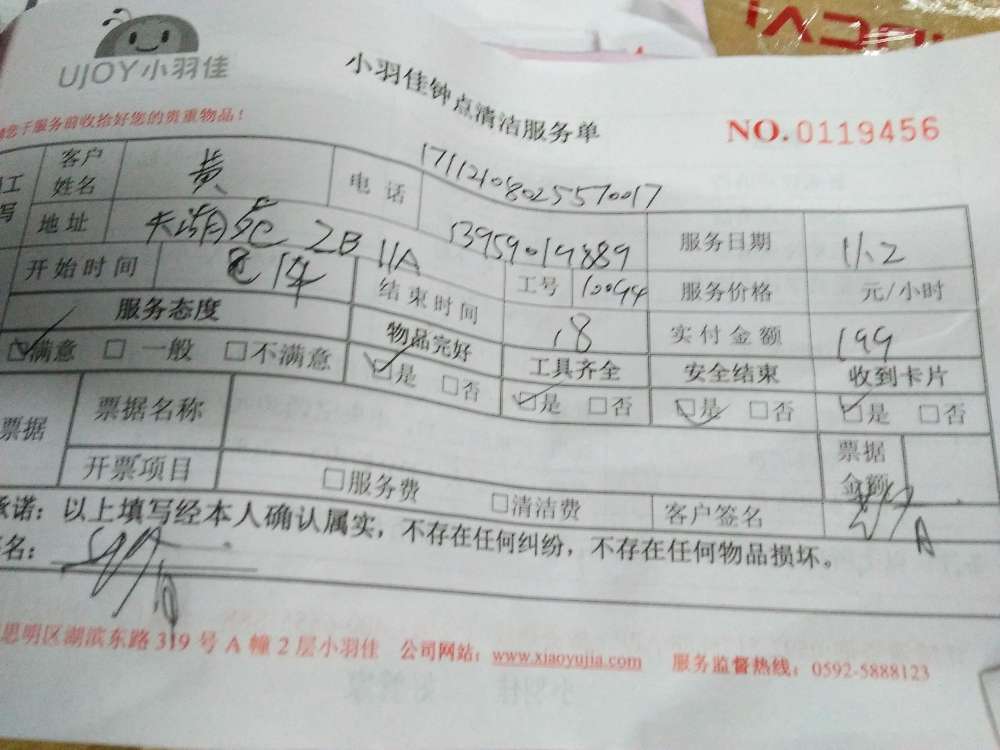 UJOY小羽佳
小羽佳钟点清洁服务单
您于服务前收拾好您的贵重物品！
NO.0119456
工 客户姓名 黄 电话 17112108025570017
写 地址 湖苑 2B 11A 13959019889 服务日期 11.2
开始时间 14 结束时间 18 工号 10094 服务价格 元/小时
服务态度 物品完好 实付金额 199
工具齐全 安全结束 收到卡片
☑满意 □一般 □不满意 ☑是 □否 ☑是 □否 ☑是 □否 ☑是 □否
票据 票据名称 票据金额
开票项目 □服务费 □清洁费 客户签名
承诺：以上填写经本人确认属实，不存在任何纠纷，不存在任何物品损坏。
名：
思明区湖滨东路 319 号 A 幢 2 层小羽佳 公司网站：www.xiaoyujia.com 服务监督热线：0592-5888123